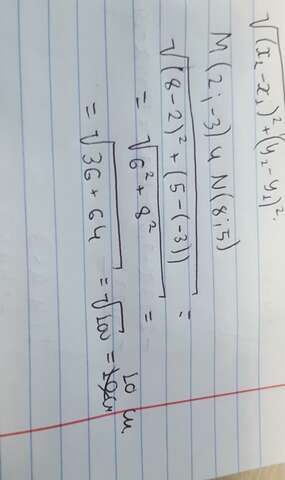 √(x₂-x₁)²+(y₂-y₁)²
M(2;-3) и N(8;5)
√(8-2)²+(5-(-3)) =
= √6²+8² =
= √36+64 = √100 = 10 см